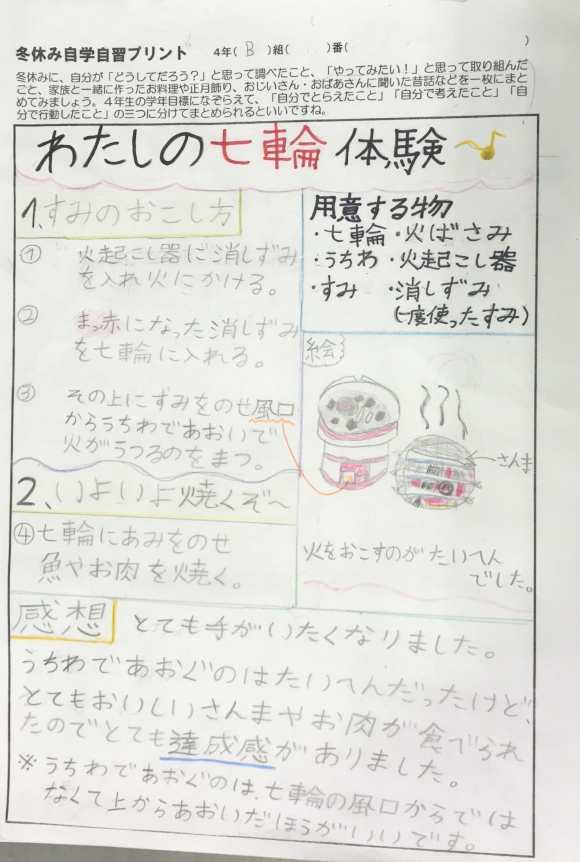 冬休み自学自習プリント　4年(B)組(　)番(　)
冬休みに、自分が「どうしてだろう？」と思って調べたこと、「やってみたい！」と思って取り組んだ
こと、家族と一緒に作ったお料理や正月飾り、おじいさん・おばあさんに聞いた昔話などを一枚にまと
めてみましょう。4年生の学年目標になぞらえて、「自分でとらえたこと」「自分で考えたこと」「自
分で行動したこと」の三つに分けてまとめられるといいですね。
わたしの七輪体験
1、すみのおこし方
① 火起こし器に消しずみ
を入れ火にかける。
② まっ赤になった消しずみ
を七輪に入れる。
③ その上にすみをのせ風口
からうちわであおいで
火がうつるのをまつ。
2、いよいよ焼くぞ〜
④七輪にあみをのせ
魚やお肉を焼く。
用意する物
・七輪・火ばさみ
・うちわ・火起こし器
・すみ ・消しずみ
(一度使ったすみ)
絵
さんま
火をおこすのがたいへん
でした。
感想 とても手がいたくなりました。
うちわであおぐのはたいへんだったけど、
とてもおいしいさんまやお肉が食べられ
たのでとても達成感がありました。
※うちわであおぐのは、七輪の風口からでは
なくて上からあおいだほうがいいです。